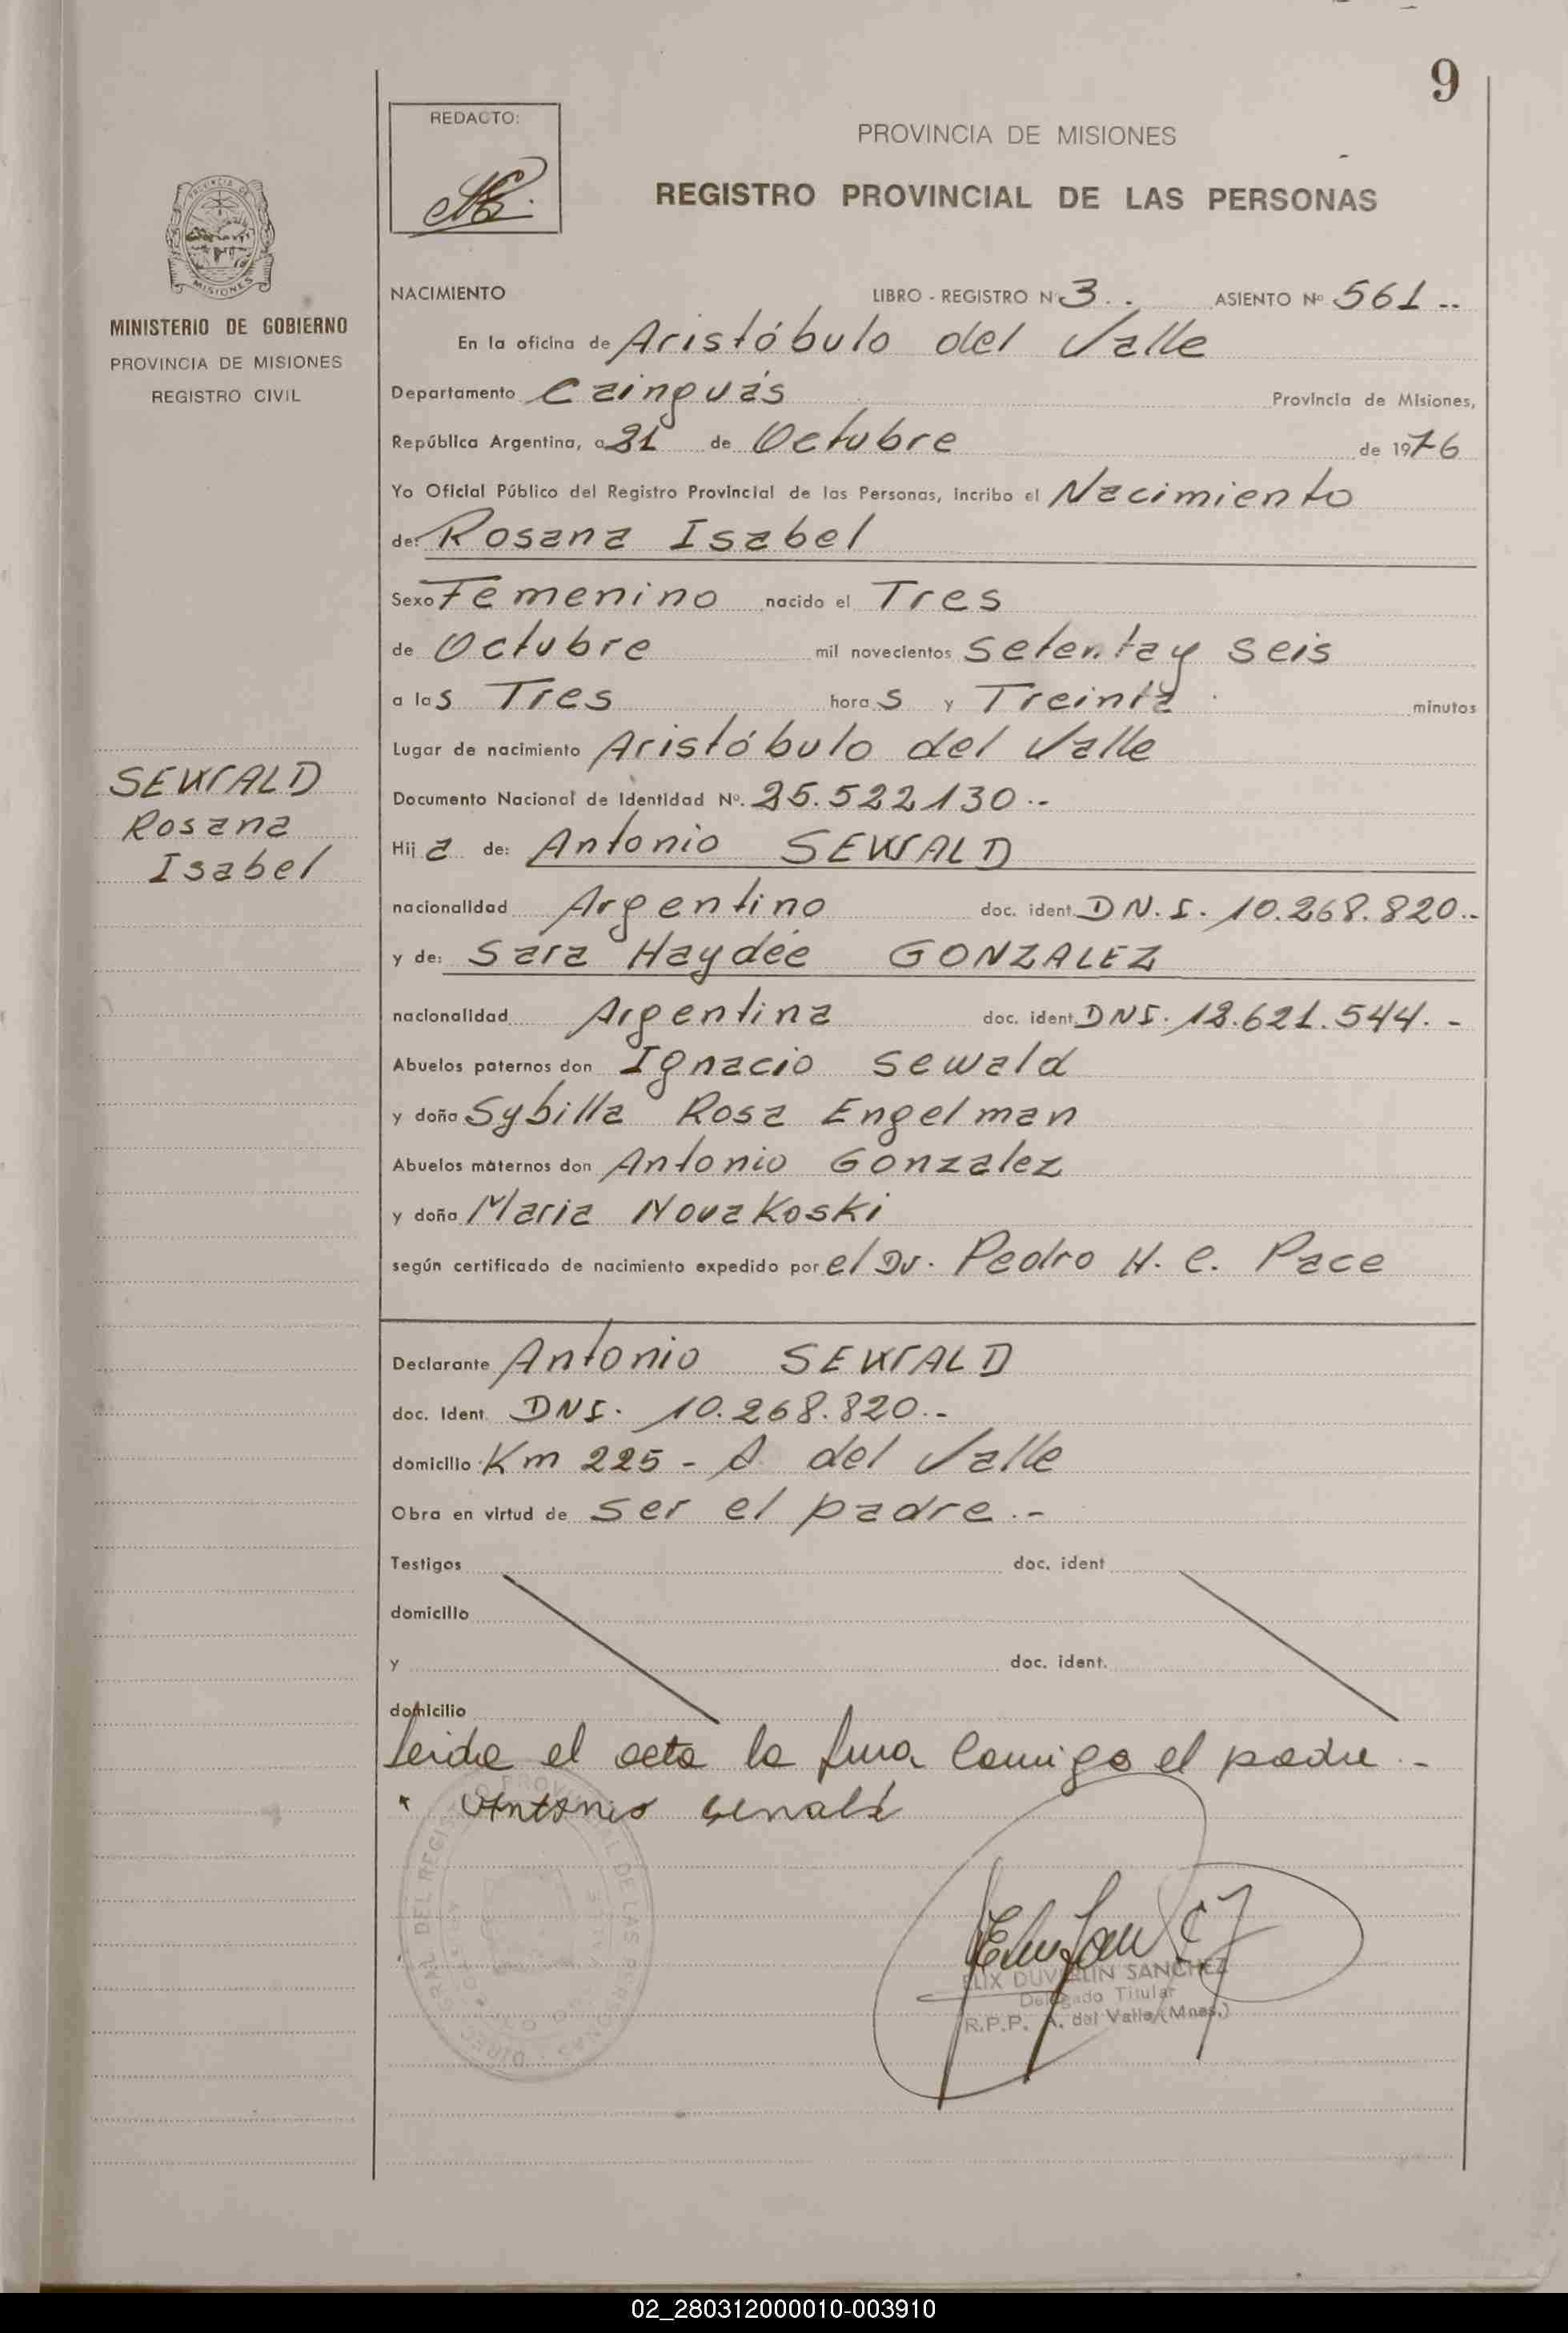 9
REDACTO:
PROVINCIA DE MISIONES
REGISTRO PROVINCIAL DE LAS PERSONAS
PROVINCIA DE
MISIONES
MINISTERIO DE GOBIERNO
PROVINCIA DE MISIONES
REGISTRO CIVIL
SEWALD
Rosana
Isabel
NACIMIENTO LIBRO - REGISTRO Nº 3.. ASIENTO Nº 561--
En la oficina de Aristóbulo del Valle
Departamento Cainguás Provincia de Misiones,
República Argentina, a 21 de Octubre de 1976
Yo Oficial Público del Registro Provincial de las Personas, incribo el Nacimiento
de: Rosana Isabel
Sexo Femenino nacido el Tres
de Octubre mil novecientos setenta y seis
a las Tres horas y Treinta minutos
Lugar de nacimiento Aristóbulo del Valle
Documento Nacional de Identidad Nº. 25.522.130.-
Hija de: Antonio SEWALD
nacionalidad Argentino doc. ident. DN.I. 10.268.820.-
y de: Sara Haydée GONZALEZ
nacionalidad Argentina doc. ident. DNI. 12.621.544.-
Abuelos paternos don Ignacio Sewald
y doña Sybilla Rosa Engelman
Abuelos maternos don Antonio Gonzalez
y doña Maria Novakoski
según certificado de nacimiento expedido por el Dr. Pedro H. C. Pace
Declarante Antonio SEWALD
doc. Ident. DNI. 10.268.820.-
domicilio Km 225 - A. del Valle
Obra en virtud de ser el padre.-
Testigos doc. ident
domicilio
y doc. ident.
domicilio
leida el acta la firma conmigo el padre.-
Antonio Sewald
DEL REGISTRO PROVINCIAL DE LAS PERSONAS
DUVALIN SANCHEZ
Delegado Titular
R.P.P. A. del Valle (Mnes.)
02_280312000010-003910